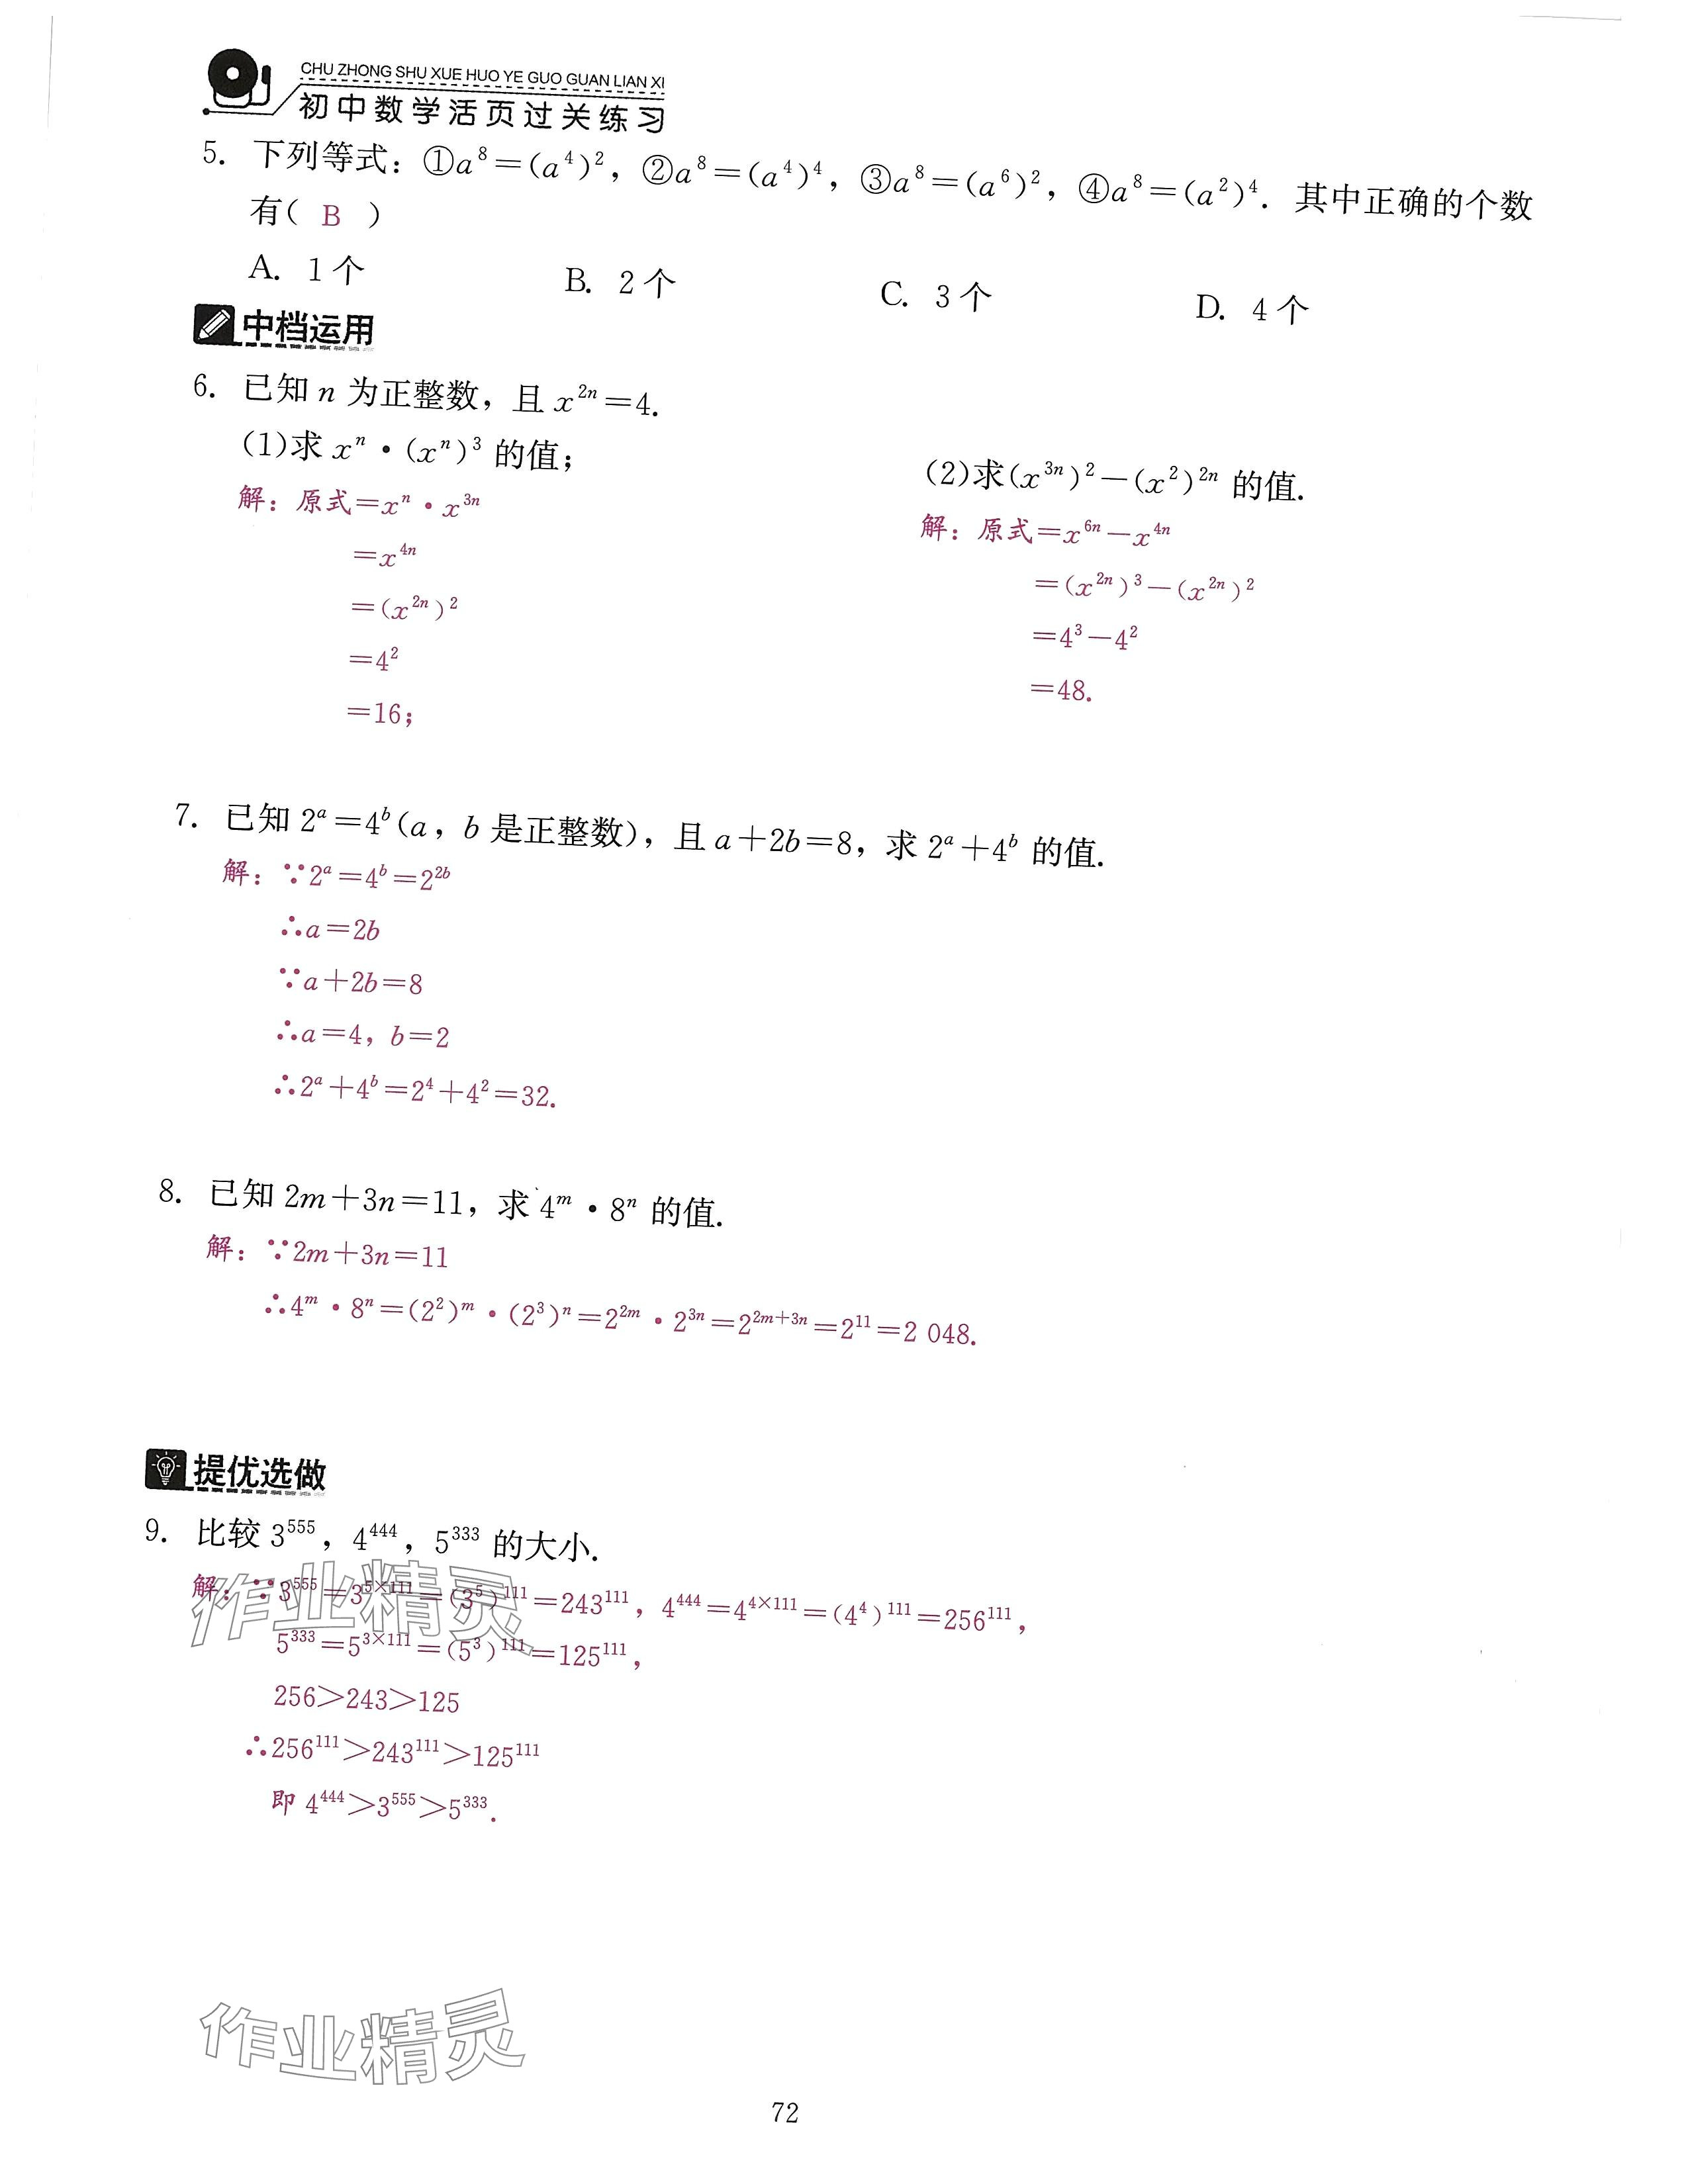 CHU ZHONG SHU XUE HUO YE GUO GUAN LIAN XI
初中数学活页过关练习
5. 下列等式：①a⁸＝(a⁴)²，②a⁸＝(a⁴)⁴，③a⁸＝(a⁶)²，④a⁸＝(a²)⁴．其中正确的个数
有( B )
A. 1个 B. 2个 C. 3个 D. 4个
中档运用
6. 已知 n 为正整数，且 x²ⁿ＝4.
(1)求 xⁿ·(xⁿ)³ 的值；
解：原式＝xⁿ·x³ⁿ
＝x⁴ⁿ
＝(x²ⁿ)²
＝4²
＝16；
(2)求(x³ⁿ)²－(x²)²ⁿ 的值.
解：原式＝x⁶ⁿ－x⁴ⁿ
＝(x²ⁿ)³－(x²ⁿ)²
＝4³－4²
＝48.
7. 已知 2ᵃ＝4ᵇ(a，b 是正整数)，且 a＋2b＝8，求 2ᵃ＋4ᵇ 的值.
解：∵2ᵃ＝4ᵇ＝2²ᵇ
∴a＝2b
∵a＋2b＝8
∴a＝4，b＝2
∴2ᵃ＋4ᵇ＝2⁴＋4²＝32.
8. 已知 2m＋3n＝11，求 4ᵐ·8ⁿ 的值.
解：∵2m＋3n＝11
∴4ᵐ·8ⁿ＝(2²)ᵐ·(2³)ⁿ＝2²ᵐ·2³ⁿ＝2²ᵐ⁺³ⁿ＝2¹¹＝2 048.
提优选做
9. 比较 3⁵⁵⁵，4⁴⁴⁴，5³³³ 的大小.
解：∵3⁵⁵⁵＝3⁵ˣ¹¹¹＝(3⁵)¹¹¹＝243¹¹¹，4⁴⁴⁴＝4⁴ˣ¹¹¹＝(4⁴)¹¹¹＝256¹¹¹，
5³³³＝5³ˣ¹¹¹＝(5³)¹¹¹＝125¹¹¹，
256＞243＞125
∴256¹¹¹＞243¹¹¹＞125¹¹¹
即 4⁴⁴⁴＞3⁵⁵⁵＞5³³³.
作业精灵
作业精灵
72